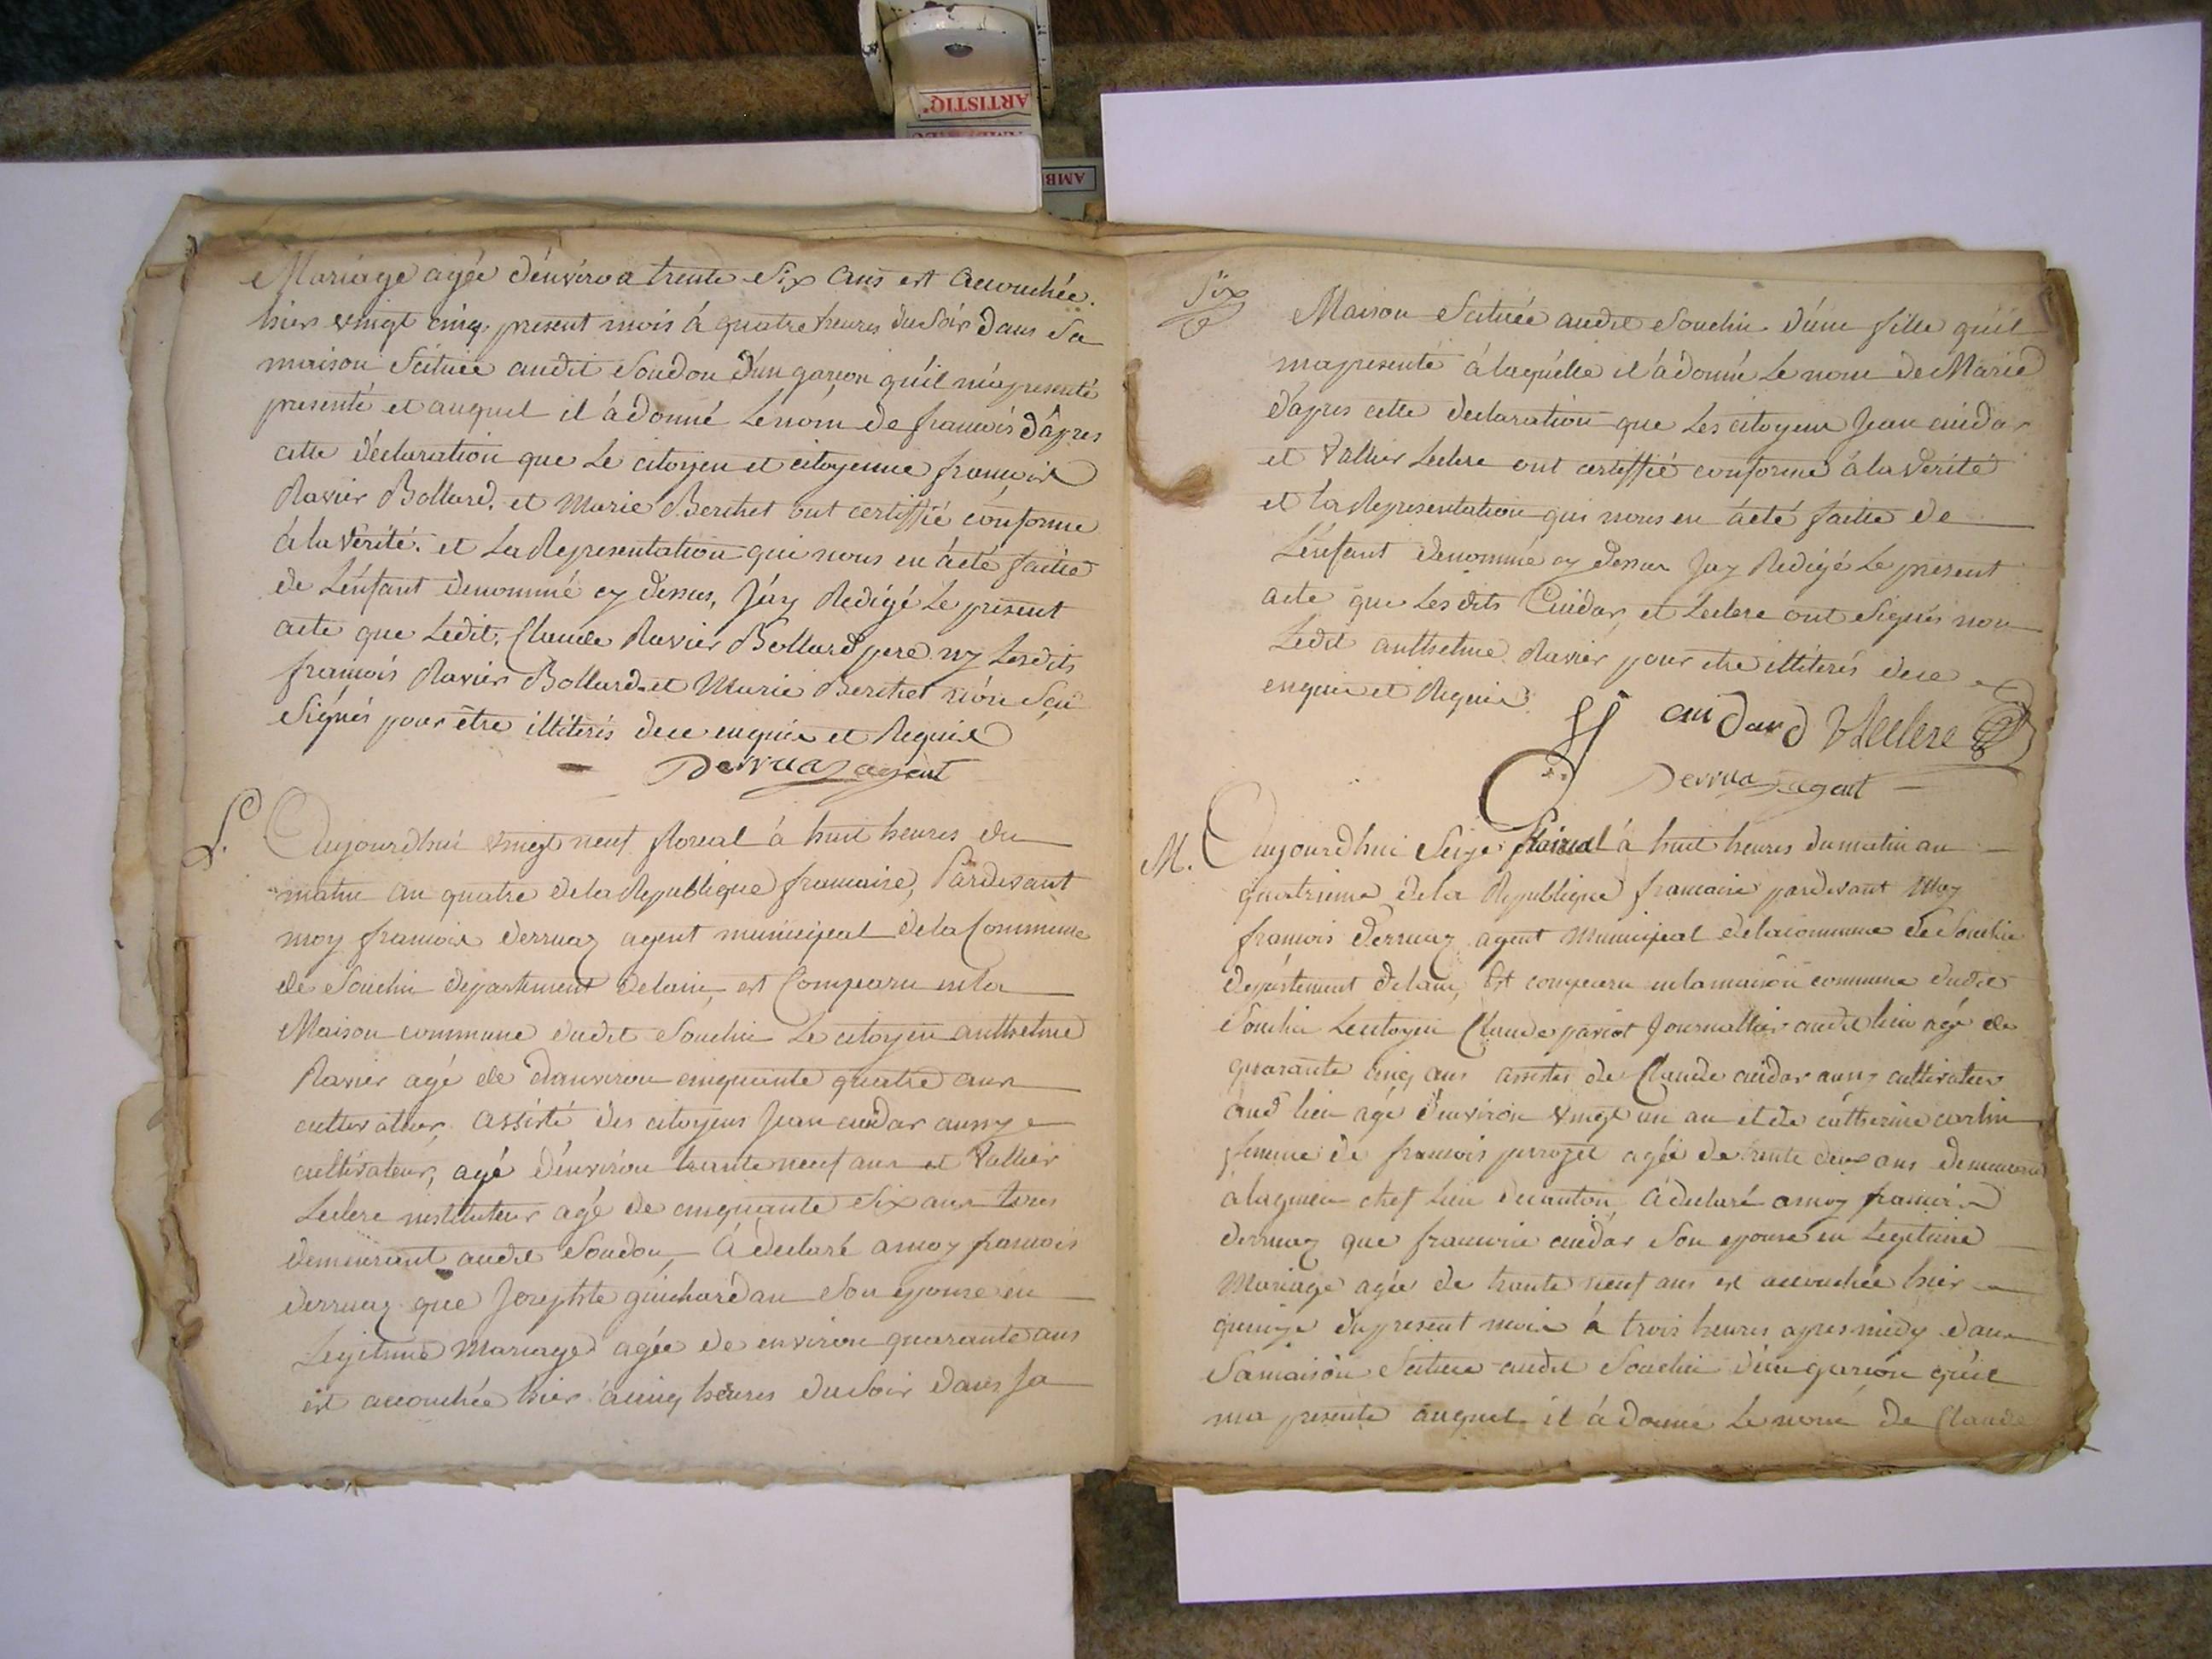 ARTISTIQ'
AMB
Mariage agée d'environ trente Six ans est accouchée.
hier vingt cinq present mois à quatre heures du Soir dans Sa
maison Scituée audit Soudon d'un garçon qu'il m'a presenté
presenté et auquel il à donné Le nom de francois d'âpres
cette déclaration que Le citoyen et citoyenne francois
Ravier Bollard. et Marie Berthet ont certiffié conforme
à la verité. et La Representation qui nous en à eté faitte
de L'enfant denommé cy dessus, J'ay Redigé Le present
acte que Ledit. Claude Ravier Bollard pere ny Lesdits
francois Ravier Bollard et Marie Berthet n'on Sçu
Signés pour être illiterés de ce enquis et Requis
Derruaz agent
Aujourdhui vingt neuf floreal à huit heures du
matin an quatre de la Republique francaise, Pardevant
moy francois derruaz agent municipal de la Commune
de Souclin departement de lain, est Comparu en la
Maison commune dudit Souclin Le citoyen antthelme
Ravier agé de d'anviron cinquante quatre ans
cultivatteur, assisté des citoyens Jean cuidar aussy
cultivateur, agé d'environ trante neuf ans et Vallier
Leclere instituteur agé de cinquante Six ans tous
demeurant audit Soudon, à declaré a moy francois
derruaz que Josephte guichardan Son epouse en
Legitime Mariage agée de environ quarante ans
est accouchée hier à cinq heures du Soir dans Sa
Six
Maison Scituée audit Souclin d'une fille qu'il
ma presenté à laquelle il à donné Le nom de Marie
d'apres cette declaration que Les citoyens Jean cuidar
et Vallier Leclere ont certiffié conforme à la verité
et la Representation qui nous en à eté faitte de
L'enfant denommé cy dessus Jay Redigé Le present
acte que Les dits Cuidar et Leclere ont Signés non
Ledit antthelme Ravier pour etre illiterés de ce
enquis et Requis
cuidard VLeclere
Derruaz agent
M. Aujourdhui Seize floreal à huit heures du matin an
quatrieme de la Republique francaise pardevant Moy
francois Derruaz agent Municipal de la commune de Souclin
departement de lain, Est comparu en la maison commune dudit
Souclin Le citoyen Claude pariot Journallier audit lieu agé de
quarante cinq ans assistés de Claude cuidar aussy cultivateur
aud lieu agé d'environ vingt un an et de catherine
femme de francois perrozet agée de trente deux ans demeurant
à lagnieu chef Lieu de canton, à declaré a moy francois
derruaz que francoise cuidar Son epouse en Legitime
Mariage agée de trante neuf ans est accouchée hier
quinze du present mois à trois heures apres midy dans
Sa maison Scituée audit Souclin d'un garçon qu'il
ma presenté auquel il à donné Le nom de Claude